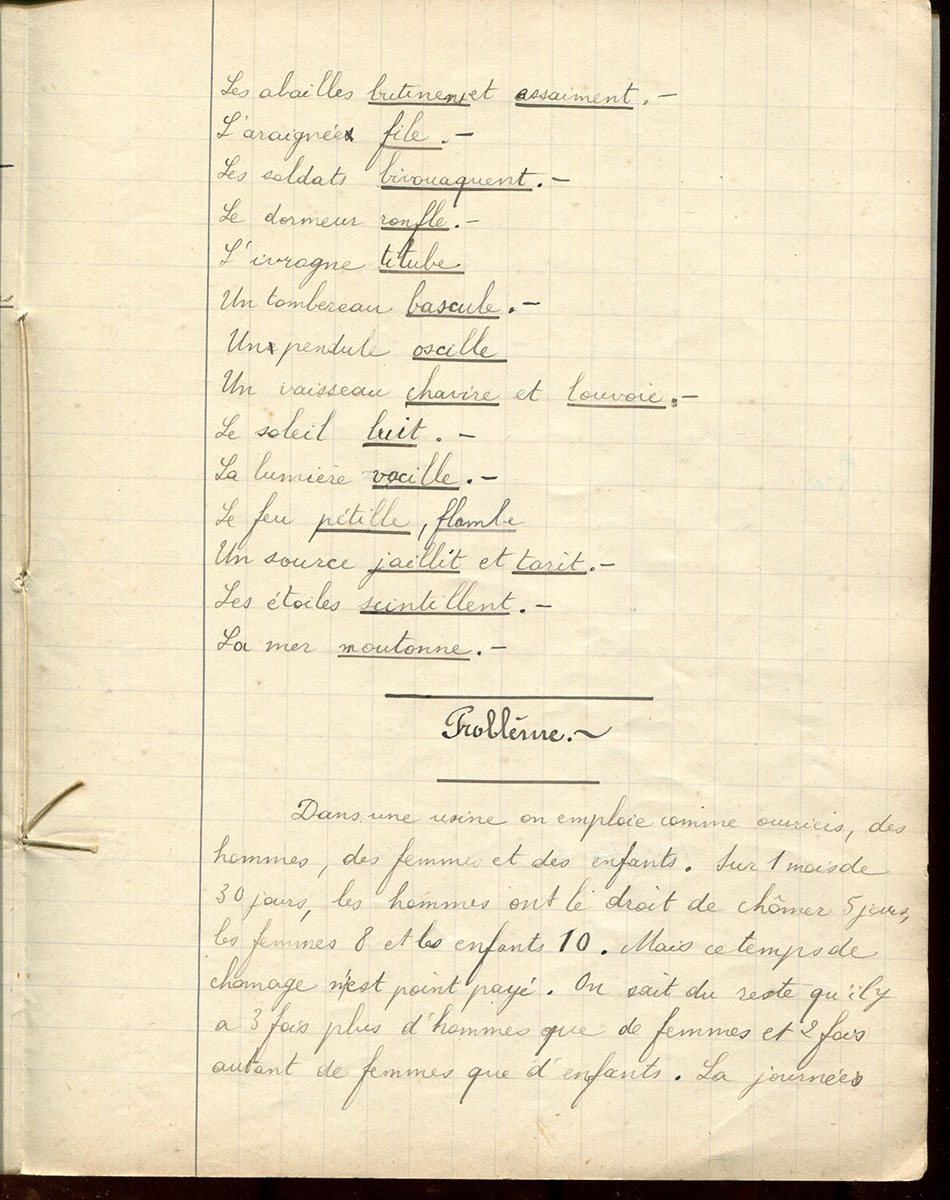 Les abailles butinent et assaiment. –
L'araignée file. –
Les soldats bivouaquent. –
Le dormeur ronfle. –
L'ivrogne titube
Un tombereau bascule. –
Un pendule oscille
Un vaisseau chavire et louvoie. –
Le soleil luit. –
La lumière vacille. –
Le feu pétille, flambe
Un source jaillit et tarit. –
Les étoiles scintillent. –
La mer moutonne. –
Problème. ~
Dans une usine on emploie comme ouvriers, des
hommes, des femmes et des enfants. Sur 1 mois de
30 jours, les hommes ont le droit de chômer 5 jours,
les femmes 8 et les enfants 10. Mais ce temps de
chomage n'est point payé. On sait du reste qu'il y
a 3 fois plus d'hommes que de femmes et 2 fois
autant de femmes que d'enfants. La journée